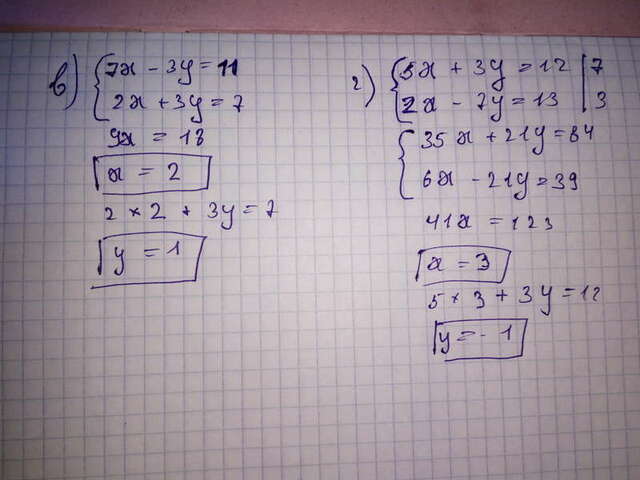 в) { 7x - 3y = 11
2x + 3y = 7
9x = 18
x = 2
2 × 2 + 3y = 7
y = 1
г) { 5x + 3y = 12 | 7
2x - 7y = 13 | 3
{ 35x + 21y = 84
6x - 21y = 39
41x = 123
x = 3
5 × 3 + 3y = 12
y = - 1